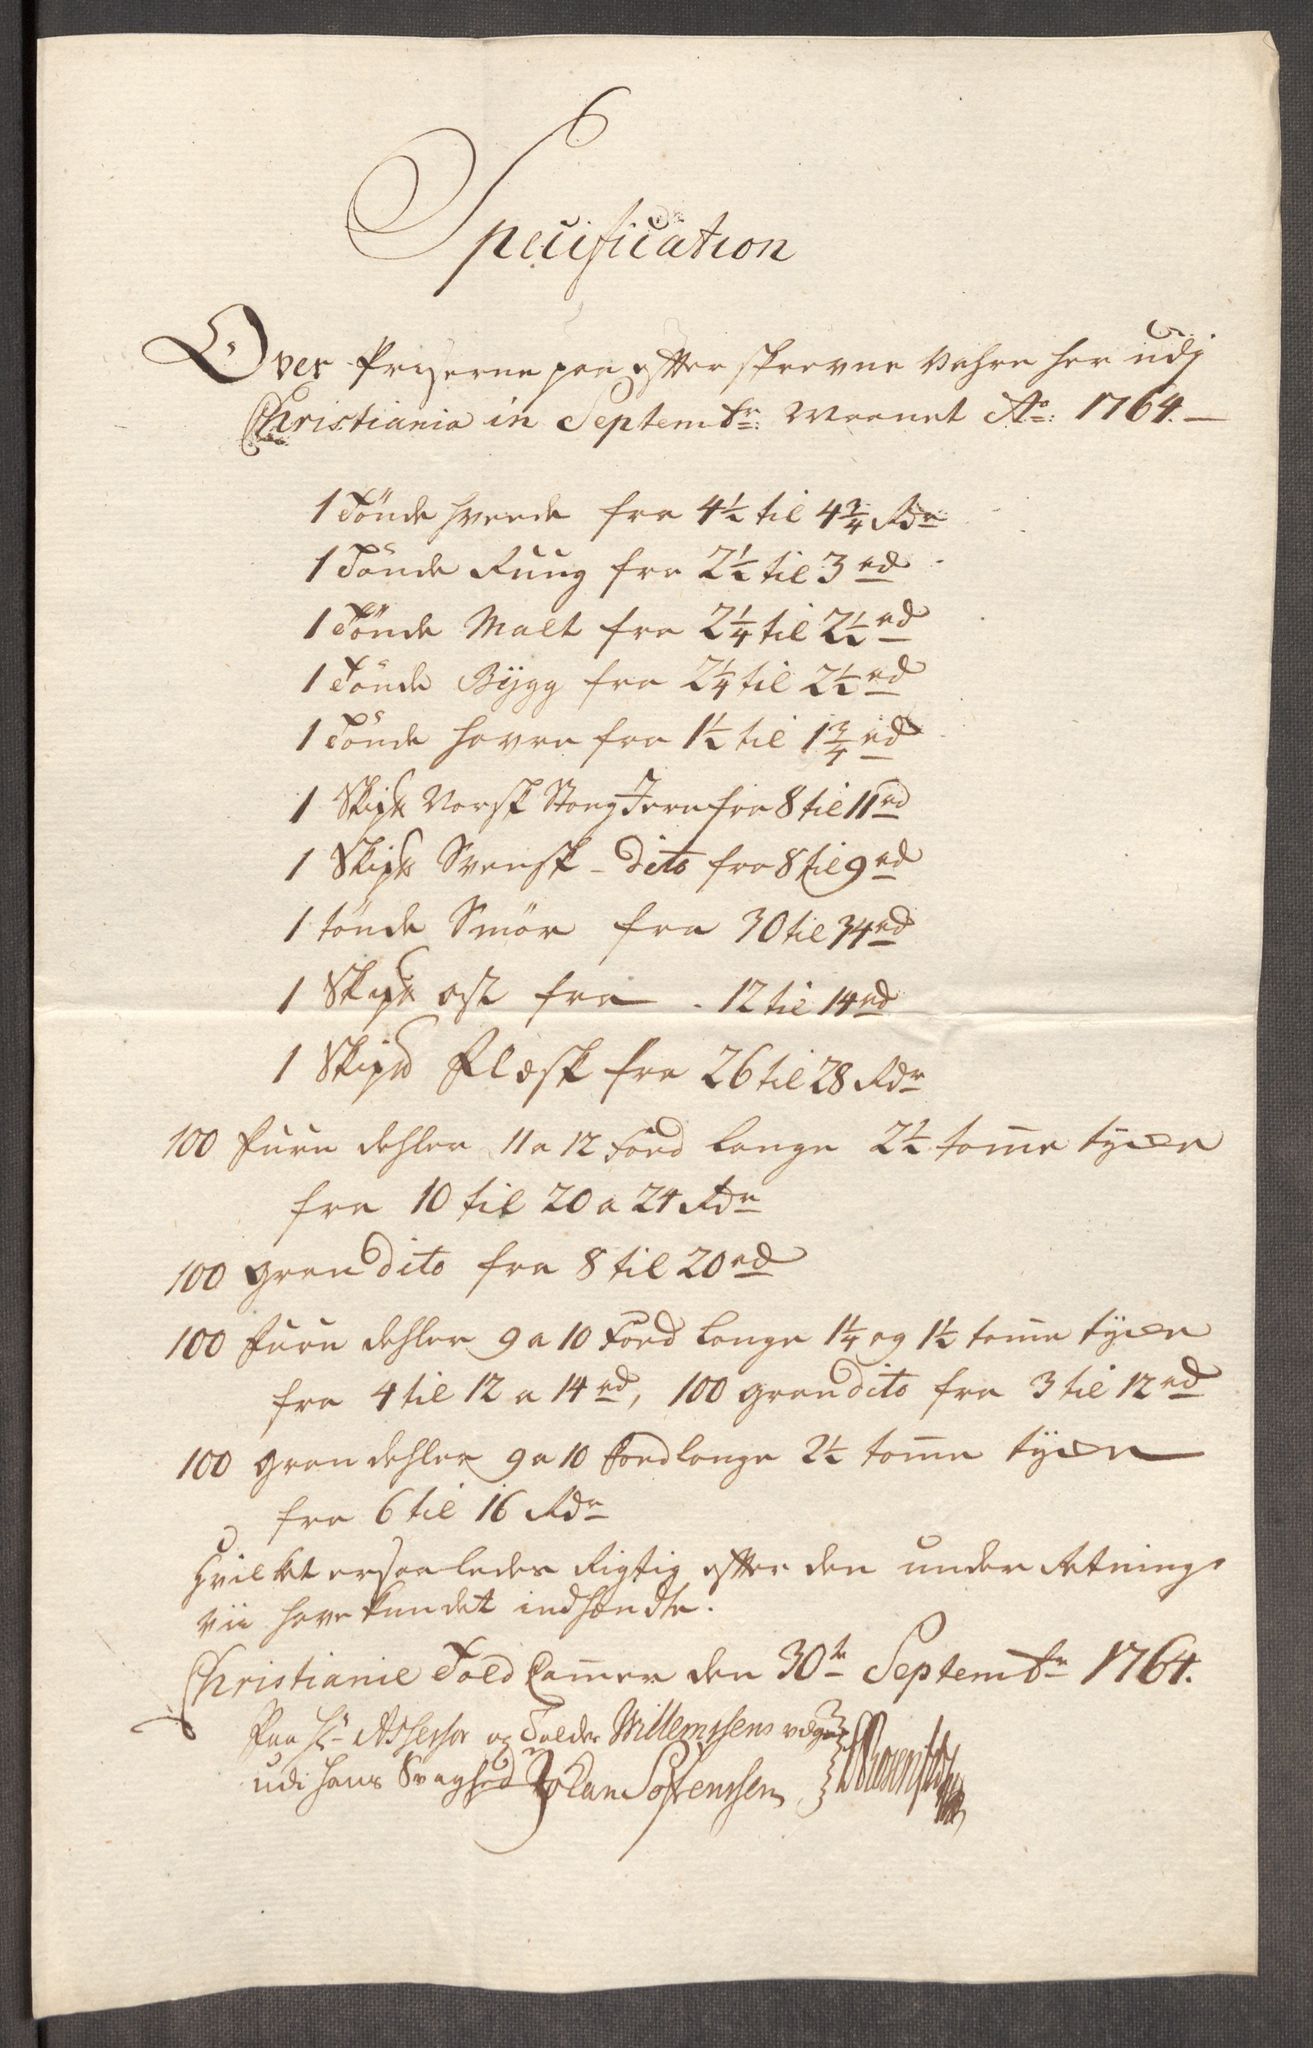 Specification
Over Pryserne paa efterskrevne Vahre her udj
Christiania in Septembr: Maanet Ao: 1764.
1 Tönde Hveede fra 4½ til 4¾ Rdr
1 Tönde Ruug fra 2½ til 3 rd
1 Tönde Malt fra 2¼ til 2½ rd
1 Tönde Bÿgg fra 2¼ til 2½ rd
1 Tönde Havre fra 1½ til 1¾ rd
1 Skipd Norsk Stang Jern fra 8 til 11 rd
1 Skipd Svensk - Dito fra 8 til 9 rd
1 tönde Smör fra 30 til 34 rd
1 Skipd ost fra - 12 til 14 rd
1 Skipd Flesk fra 26 til 28 Rdr
100 furu dehler 11 a 12 Foed lange 2½ tom̄e tycke
fra 10 til 20 a 24 Rdr
100 gran Dito fra 8 til 20 rd
100 furu dehler 9 a 10 Foed lange 1¼ og 1½ tom̄e tycke
fra 4 til 12 a 14 rd, 100 gran dito fra 3 til 12 rd
100 gran dehler 9 a 10 foed lange 2½ tom̄e tÿcke
fra 6 til 16 Rdr
Hvilket ersaaledes Rigtig efter den under Retning
vii have kundet indhændte.
Christianie Told Cam̄er den 30te Septembr 1764.
Paa Hr Assessor og Tolder Willemssens vegne
udi hans Svaghed Johan Sorenssen